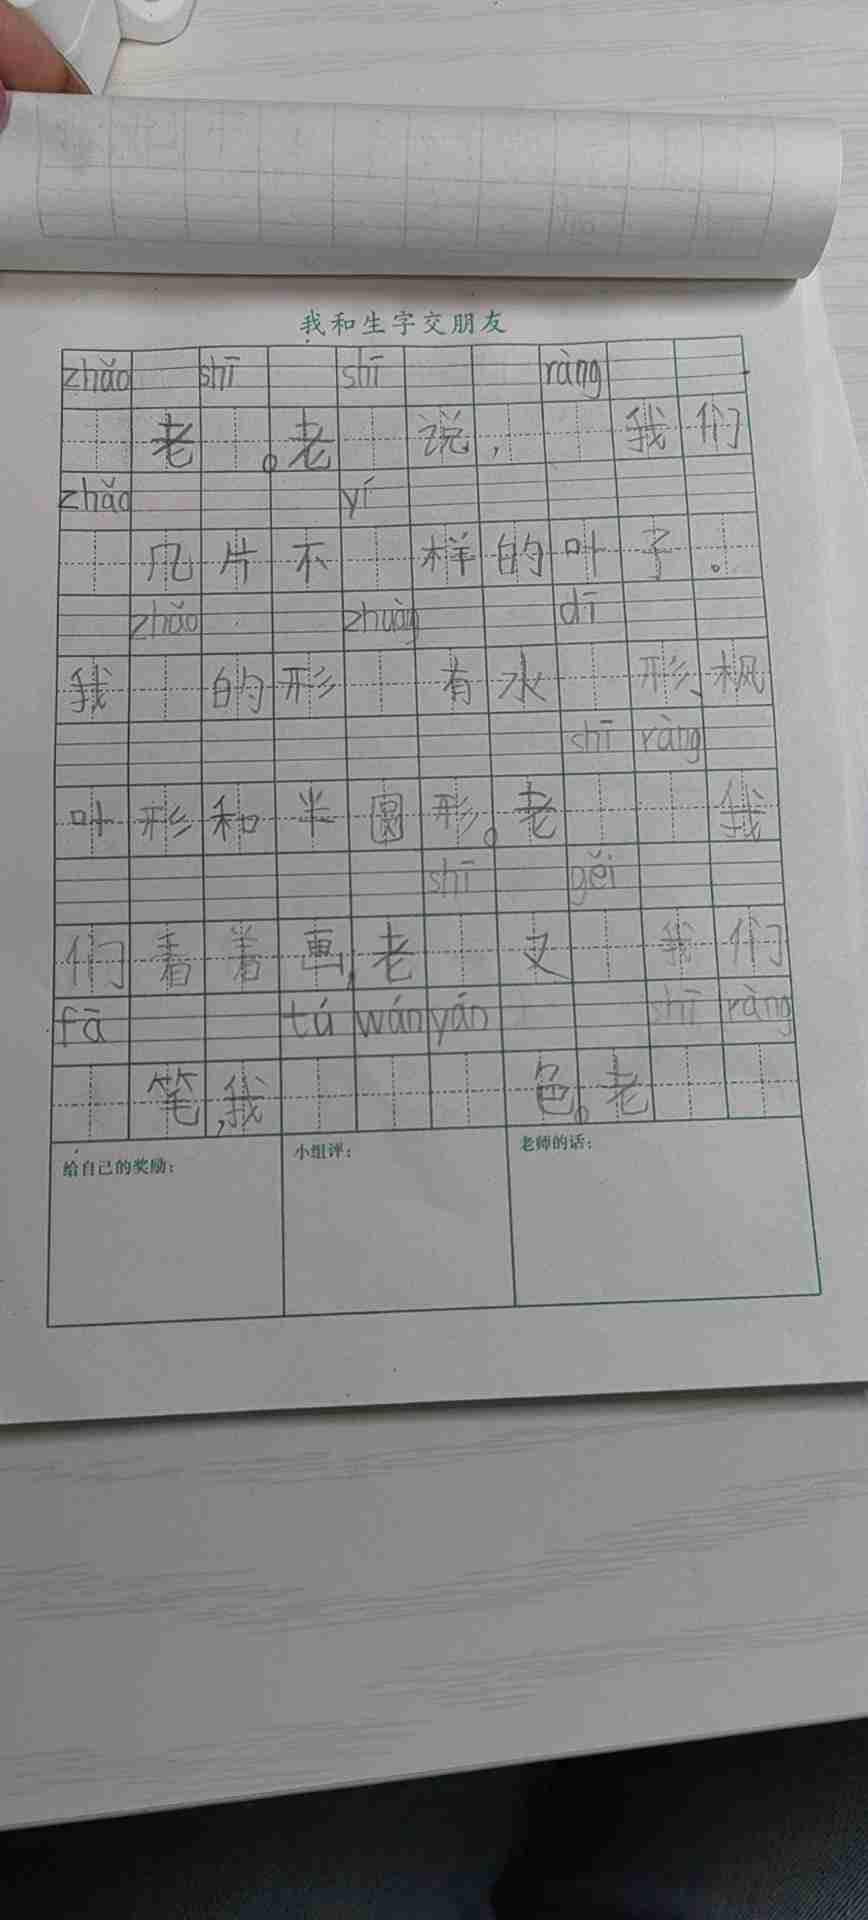 我和生字交朋友
zhǎo shī shī ràng
老 。老 说， 我们
zhǎo yí
几片不 样的叶子。
zhǎo zhuàng dī
我 的形 有水 形、枫
shī ràng
叶形和半圆形。老 我
shī gěi
们看着画，老 又 我们
fā tú wán yán shī ràng
笔，我 色。老
给自己的奖励：
小组评：
老师的话：